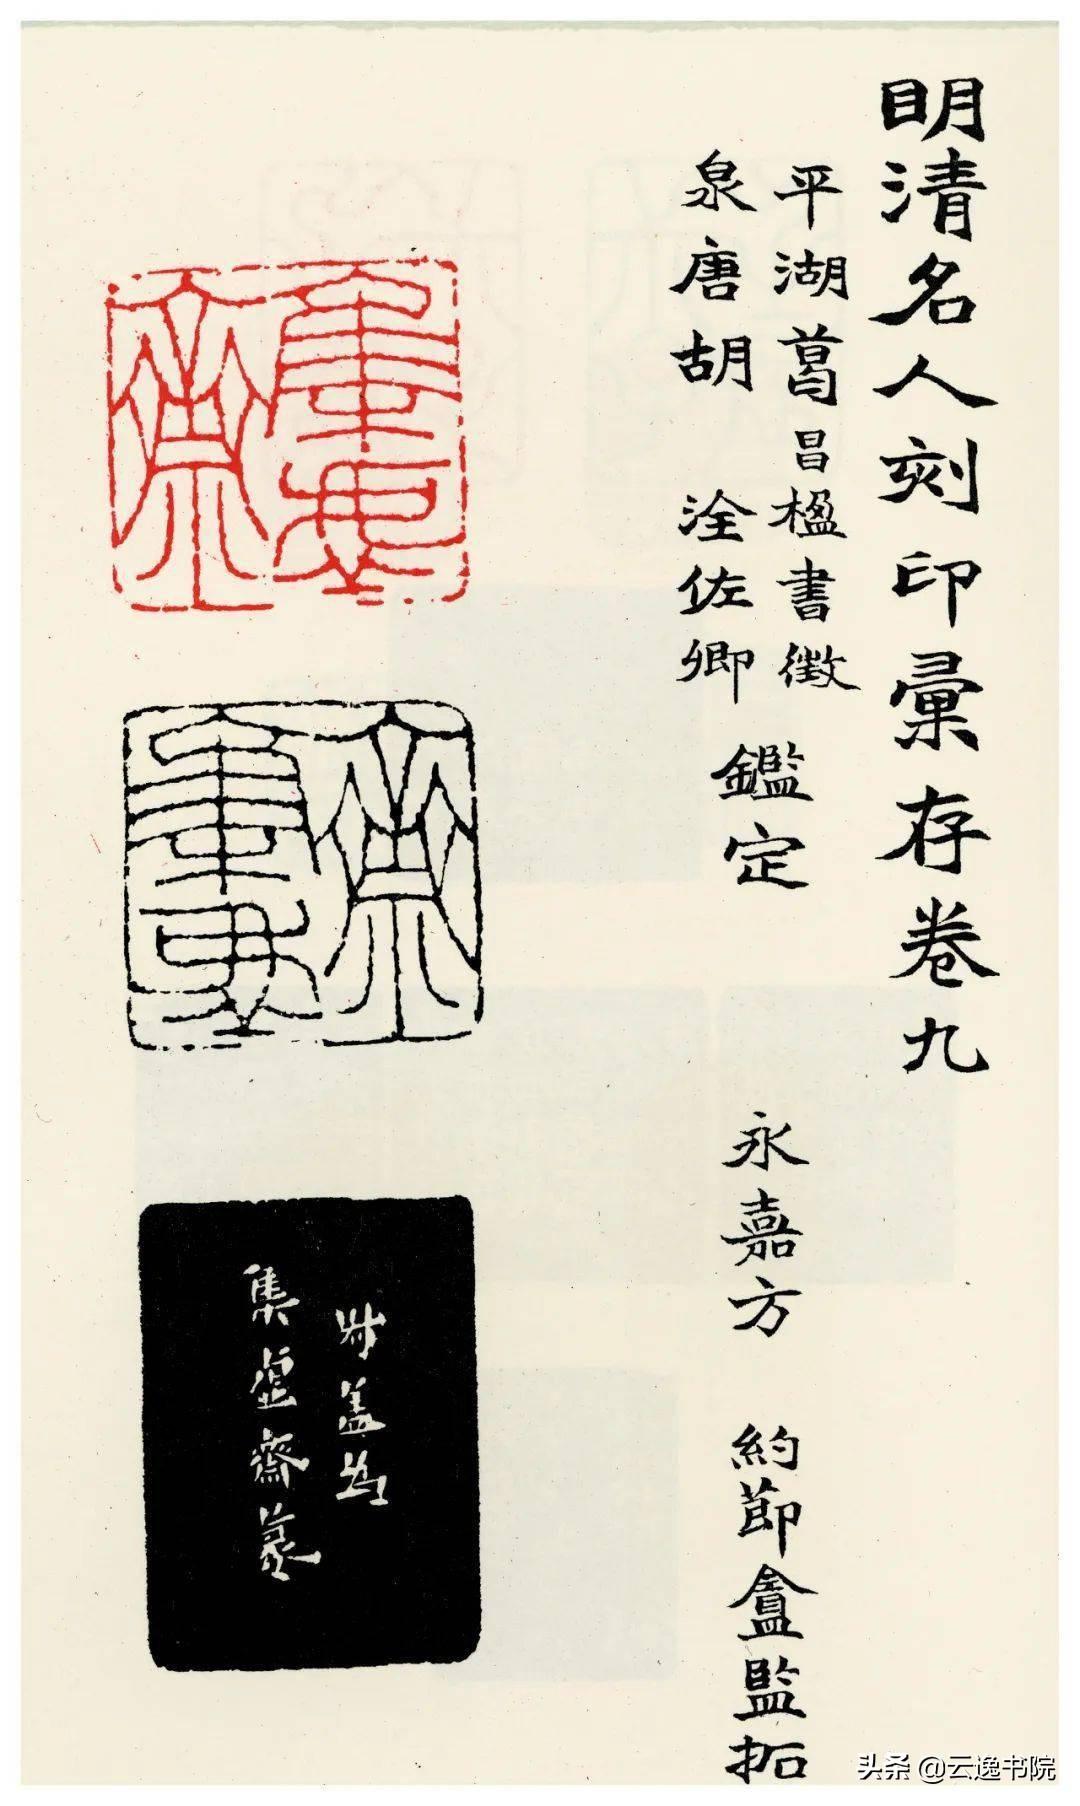 明清名人刻印彙存卷九
平湖葛昌楹書徵
泉唐胡 洤佐卿
鑑定
永嘉方 約節盦監拓
叔盖為
集虛齋篆
头条 @云逸书院